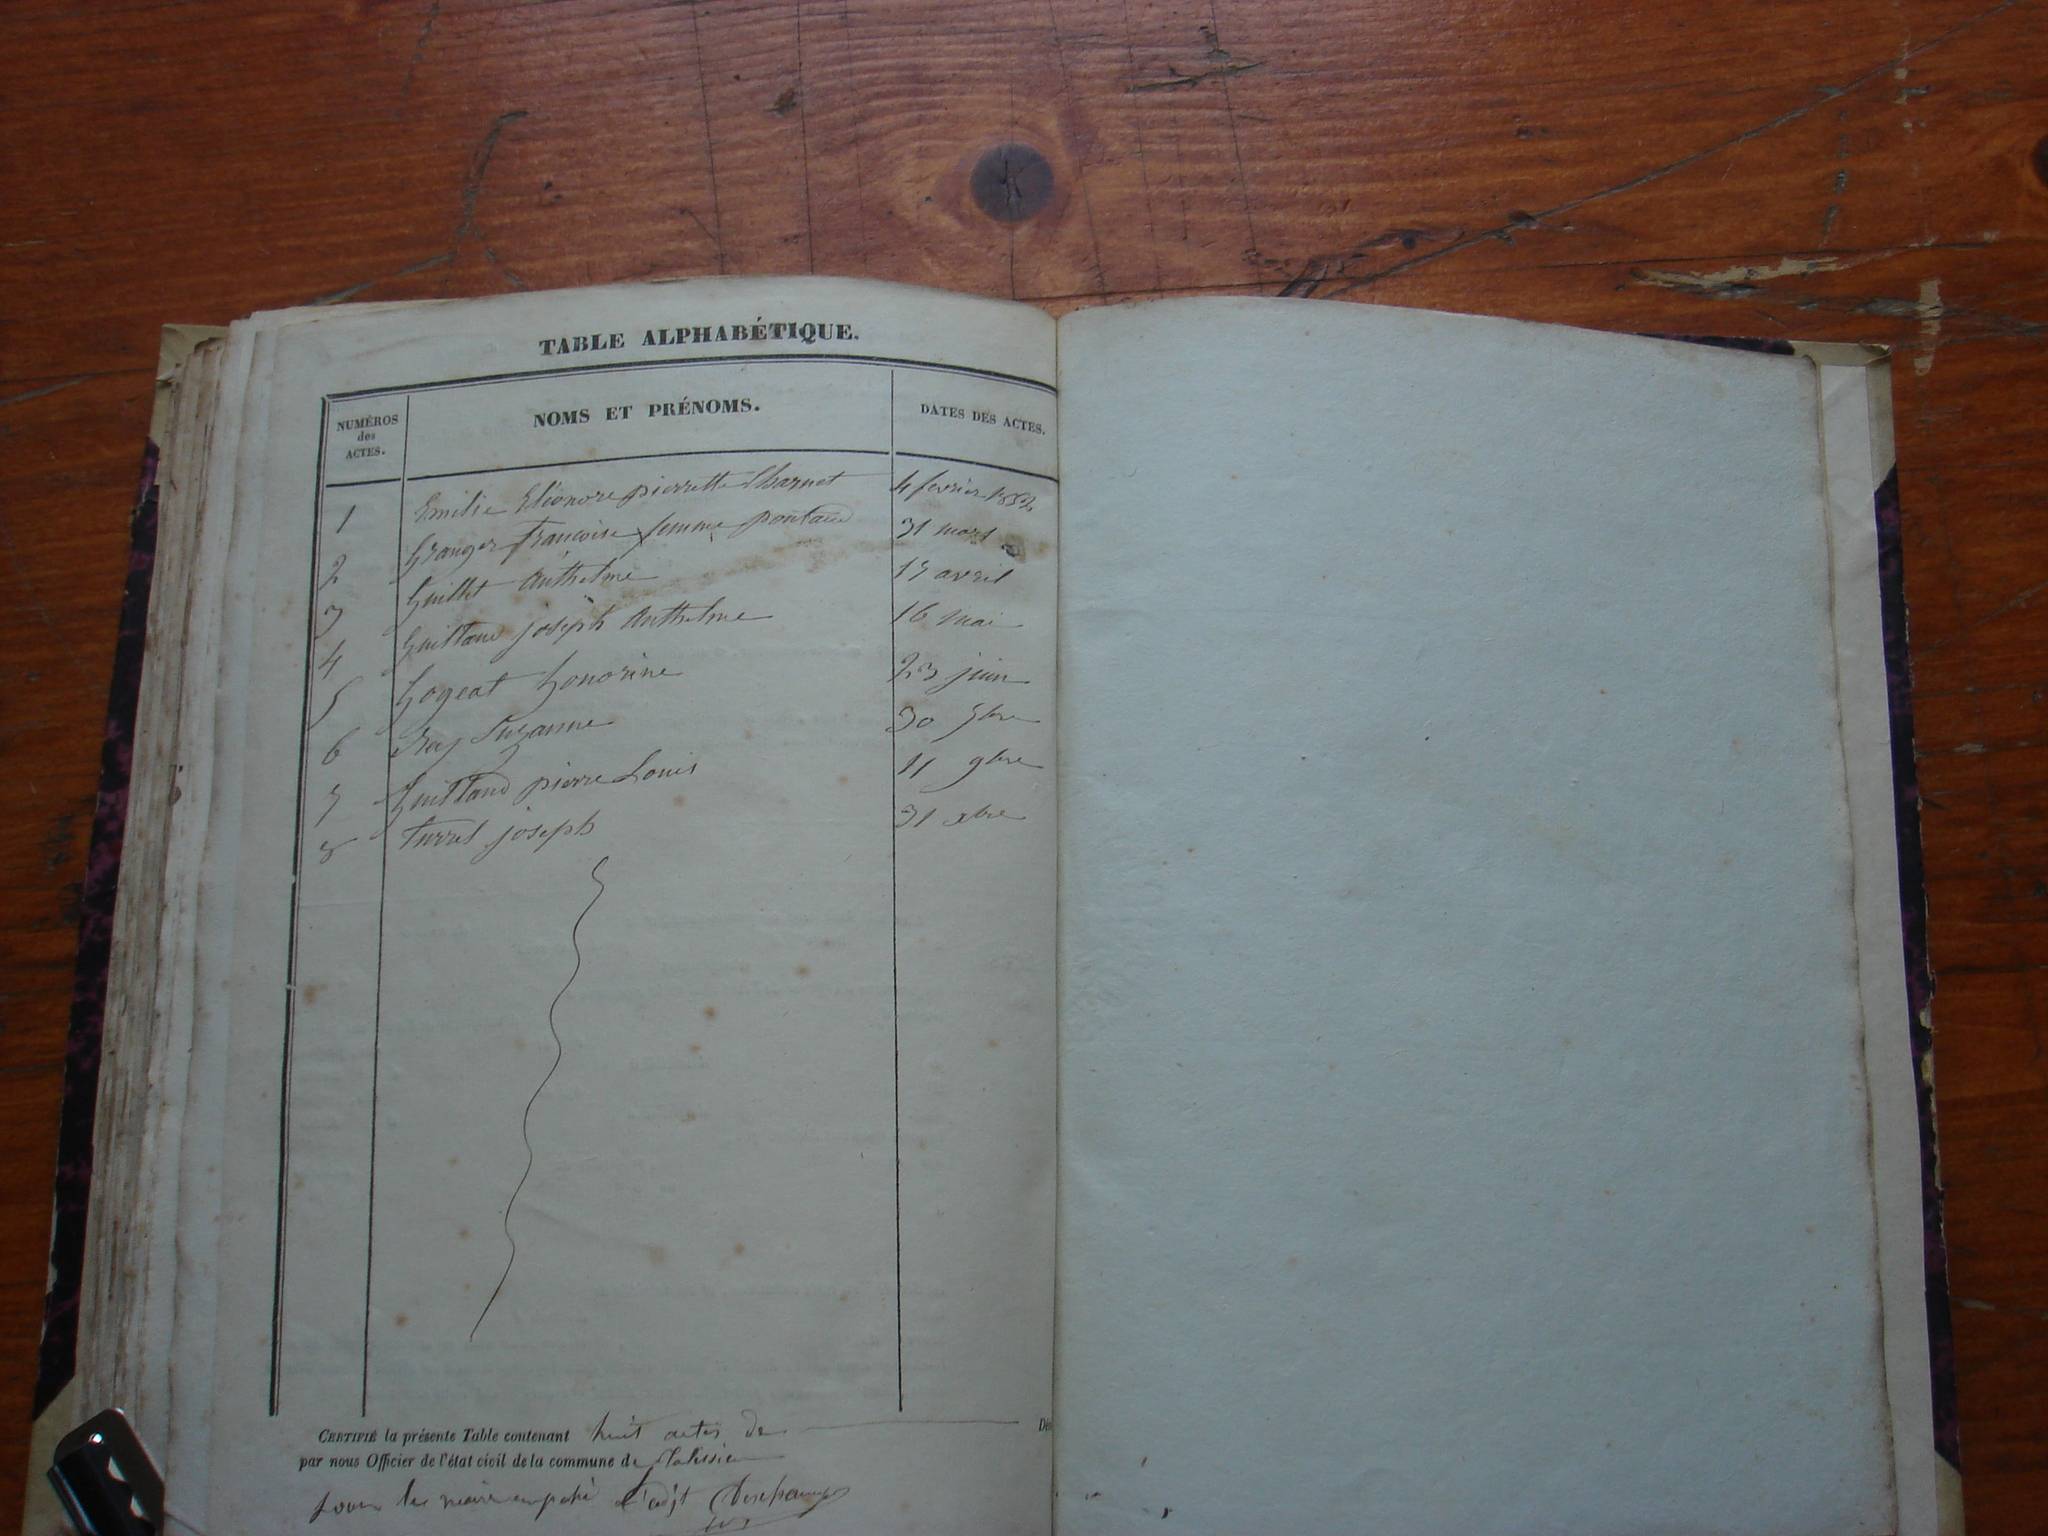 TABLE ALPHABÉTIQUE.
NUMÉROS des ACTES. NOMS ET PRÉNOMS. DATES DES ACTES.
1 Emilie Eléonore pierrette Charvet 4 fevrier
2 Granger francoise femme 31 mars
3 Guillet Anthelme 17 avril
4 joseph Anthelme 16 mai
5 hogeat honorine 23 juin
6 Rey Suzanne 30 7bre
7 Guilland pierre Louis 11 9bre
8 turrel joseph 31 xbre
CERTIFIÉ la présente Table contenant huit actes de Dé
par nous Officier de l'état civil de la commune de
pour le maire empêché L'adjt